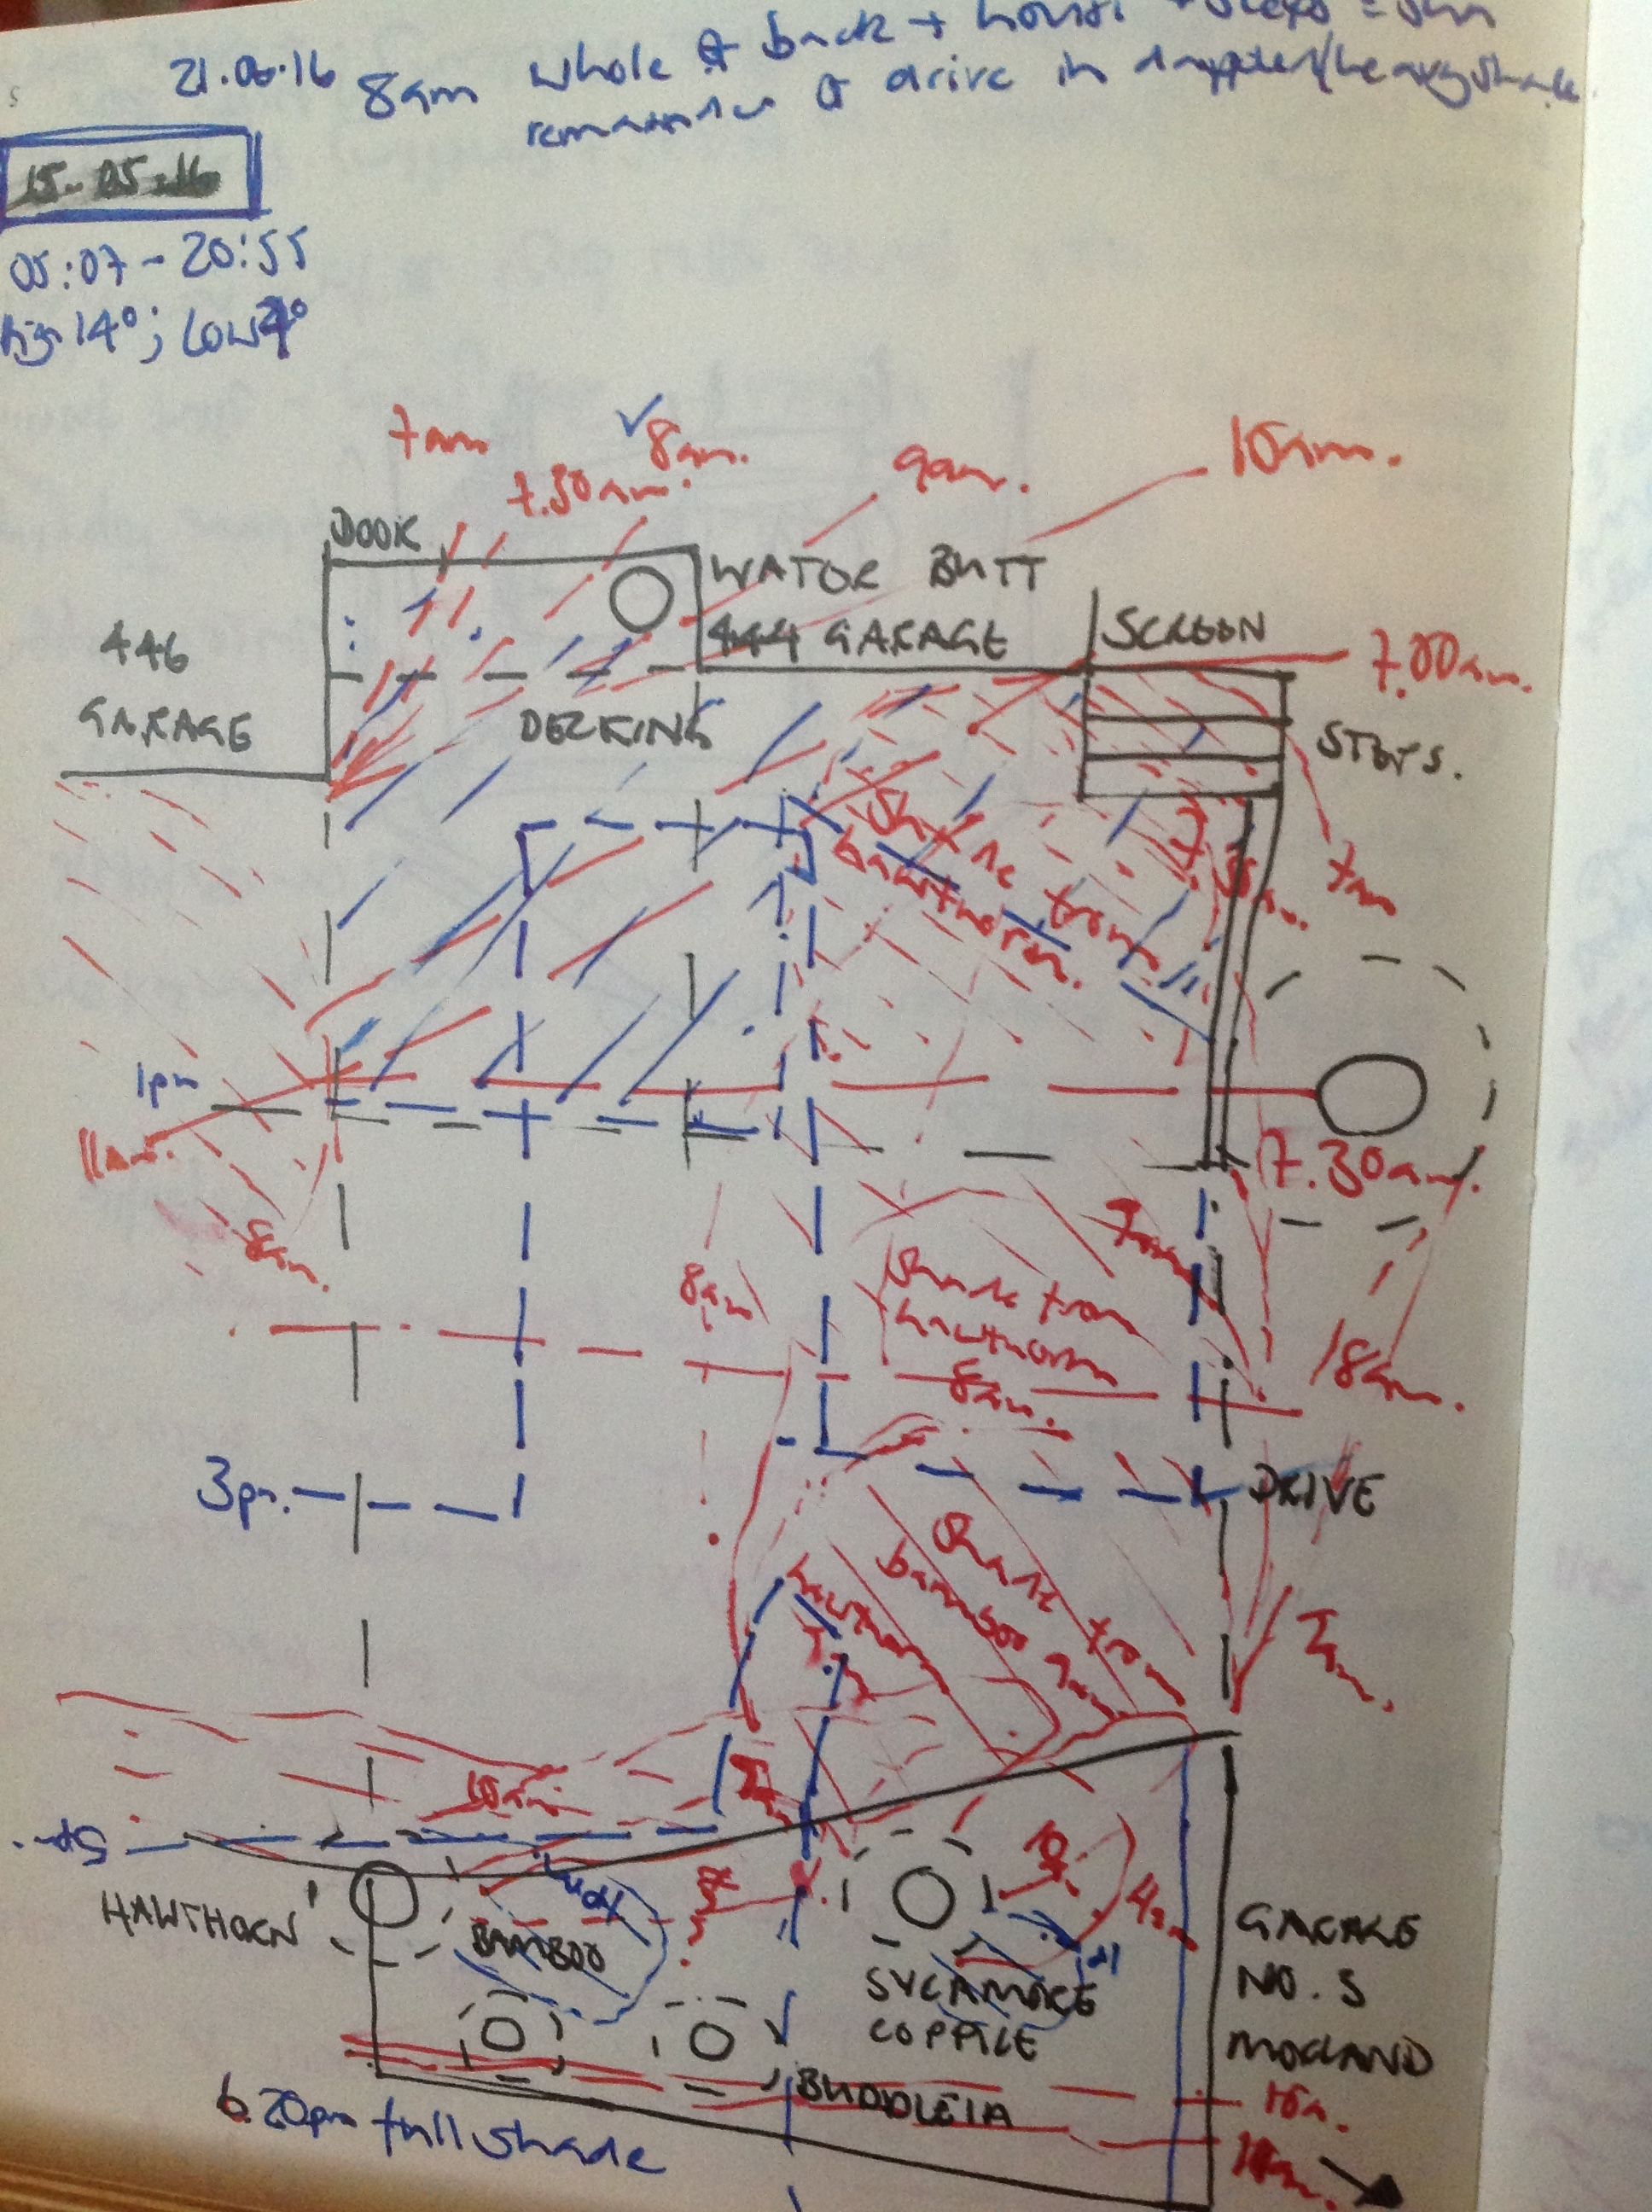 21.06.16 8am whole of back + house
remainder of drive in dappled/heavy shade.
15-05-16
05:07 - 20:55
14°; Low
7am
7.30am.
8am.
9am.
10am.
DOOR
WATOR BUTT
446
GARAGE
444 GARAGE
SCREEN
7.00am.
DECKING
STEPS.
Shade from
hawthorn.
7am
1pm
11am.
7.30am.
8am.
8am
7am
Shade from
hawthorn
8am.
18am.
3pm.
DRIVE
Shade from
bamboo 7am
hawthorn
7am
7am.
10am
7am
5pm.
HAWTHORN
BAMBOO
10
4pm
SYCAMORE
COPPICE
GARAGE
NO. 5
MORLAND
BUDDLEIA
6.20pm full shade